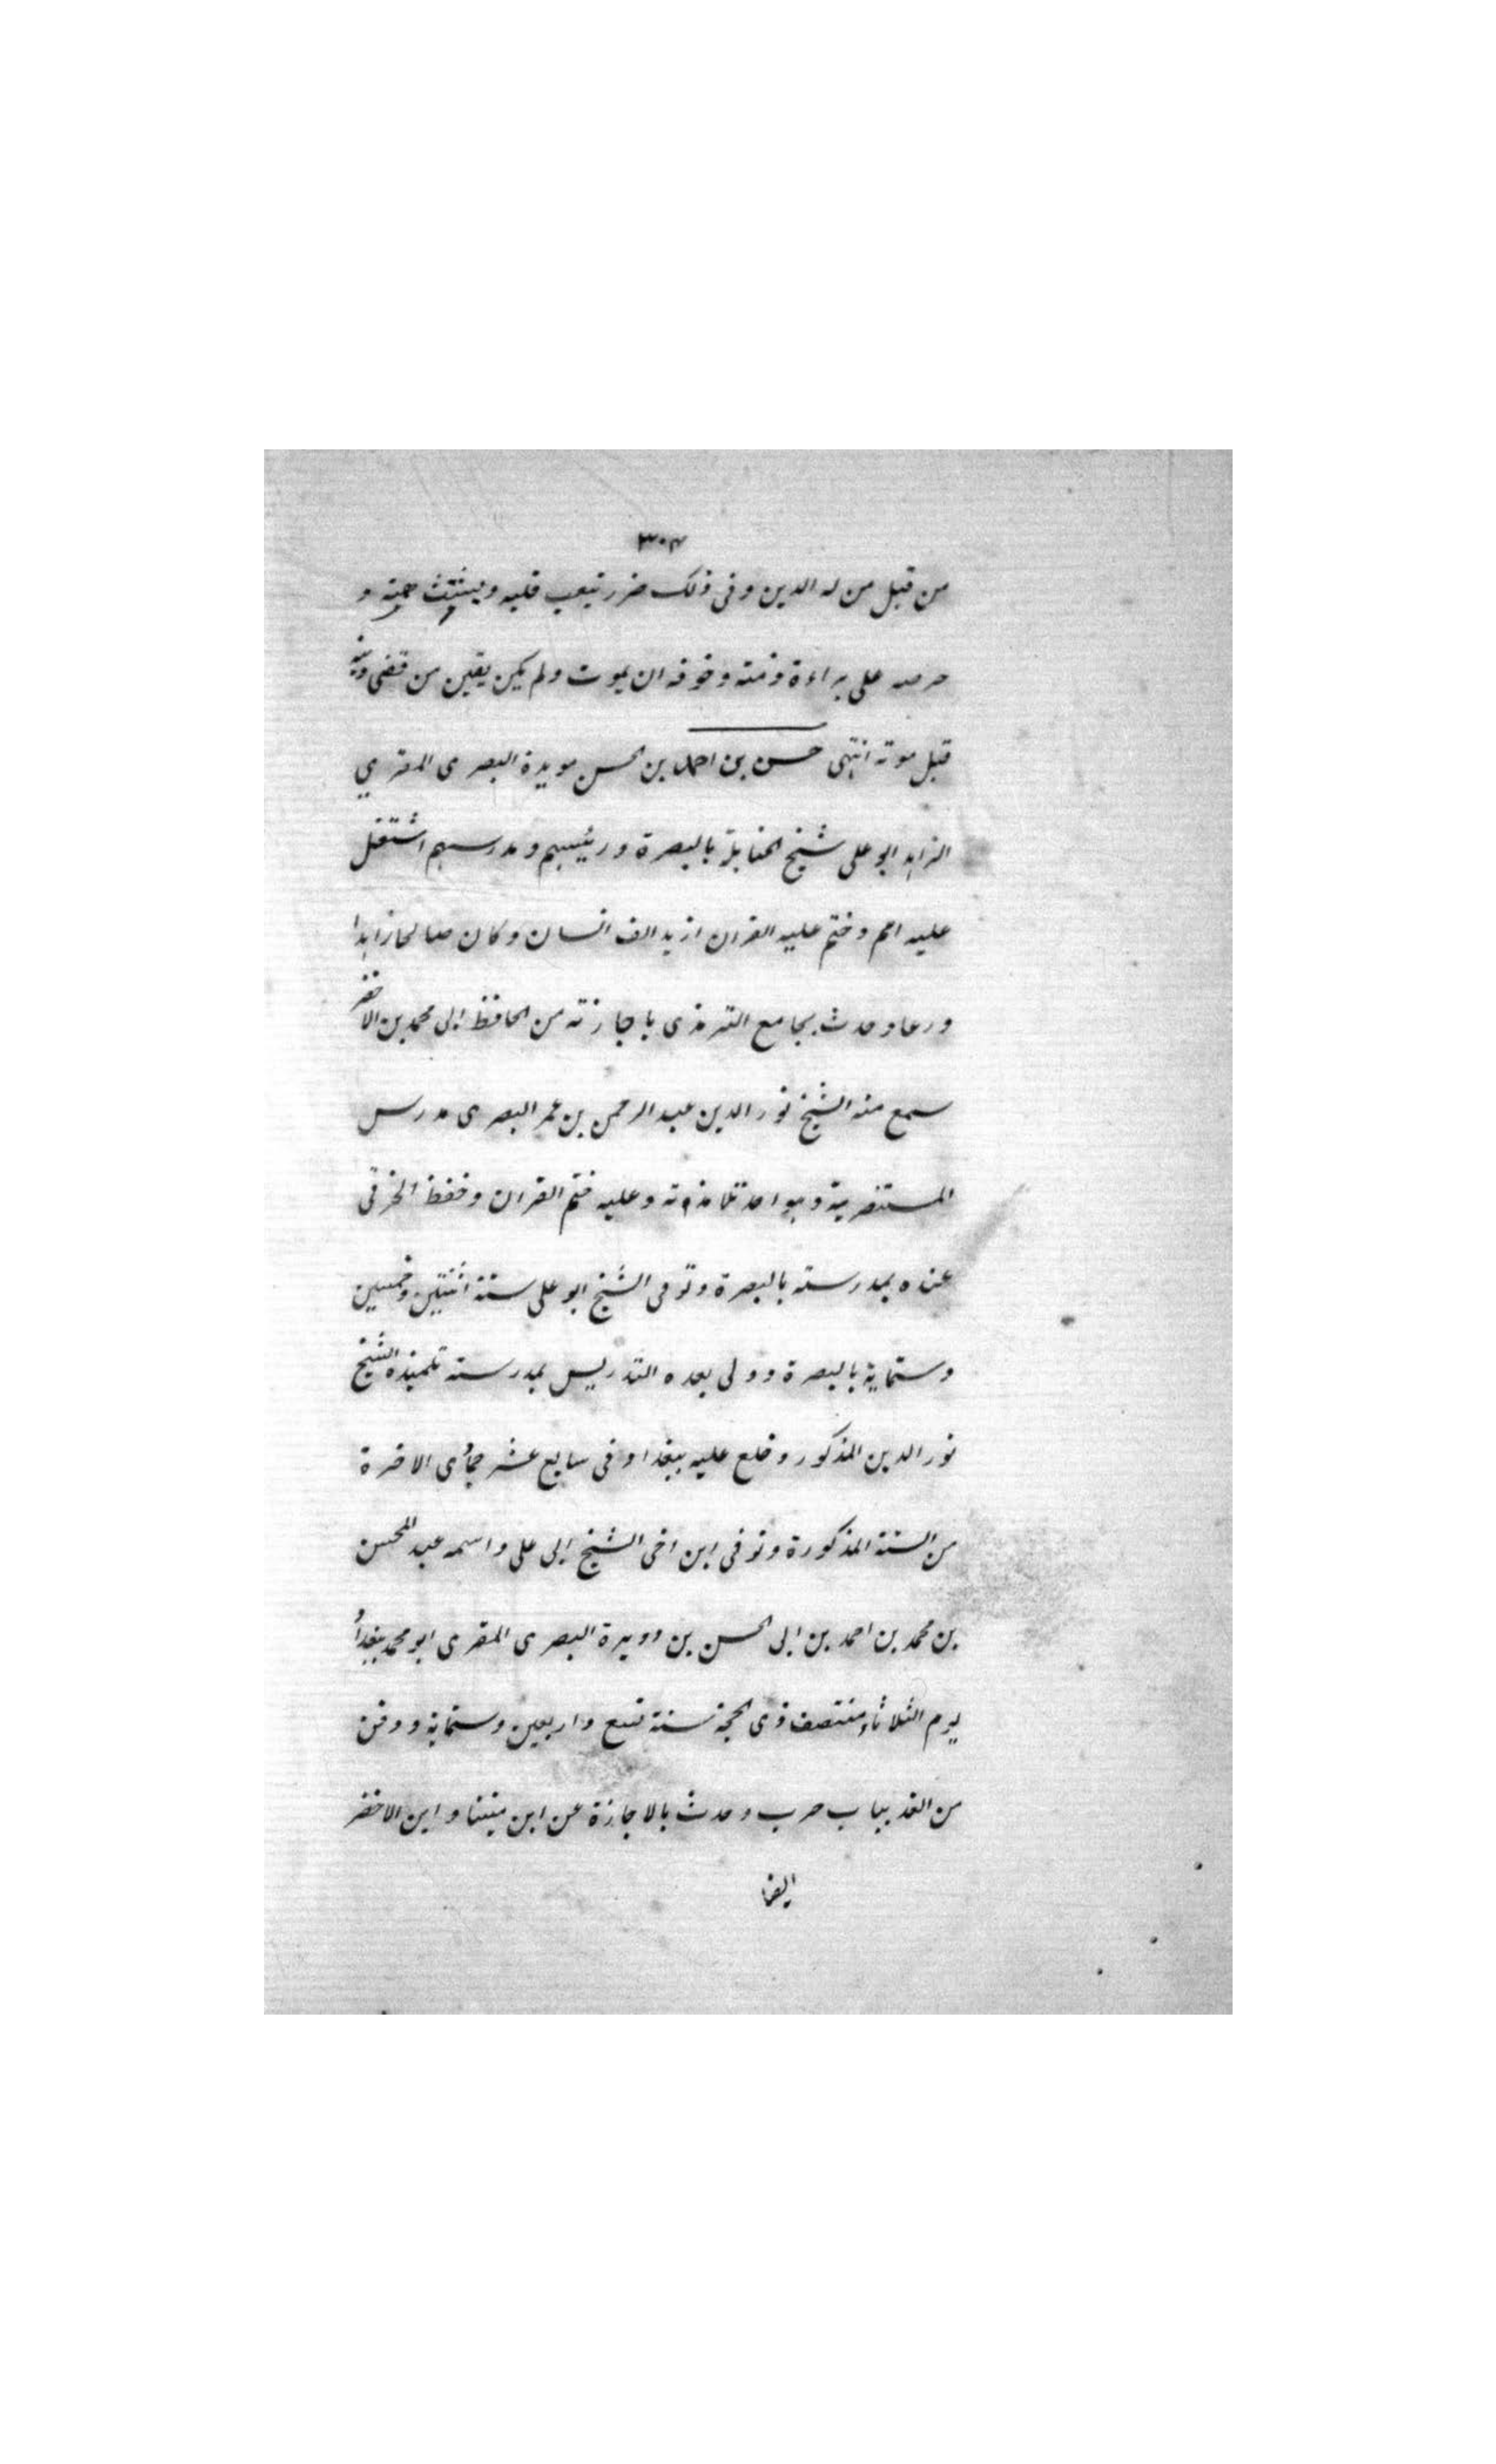 ٣٠٣
من قبل من له الدين وفى ذلك ضرر تيعب قلبه ويشتت همته و
حرصه على براءة ذمته وخوفه ان يموت ولم يكن يقين من قضى دينه
قبل موته انتهى حسن بن احمد بن الحسن مويدة البصرى المقري
الزاهد ابو على شيخ الحنابلة بالبصرة ورئيسهم ومدرسهم اشتغل
عليه امم وختم عليه القران ازيد الف انسان وكان صالحا زاهدا
ورعا وحدث بجامع الترمذى باجازته من الحافظ ابى محمد بن الاخضر
سمع منه الشيخ نور الدين عبد الرحمن بن عمر البصرى مدرس
المستنصرية وهو احد تلامذته وعليه ختم القران وحفظ الخرقى
عنده بمدرسته بالبصرة وتوفى الشيخ ابو على سنة اثنتين وخمسين
وستماية بالبصرة وولى بعده التدريس بمدرسته تلميذه الشيخ
نور الدين المذكور وخلع عليه ببغداد فى سابع عشر جمادى الاخرة
من السنة المذكورة وتوفى ابن اخى الشيخ ابى على واسمه عبد المحسن
بن محمد بن احمد بن ابى الحسن بن دويرة البصرى المقرى ابو محمد ببغداد
يوم الثلاثاء منتصف ذى الحجة سنة تسع واربعين وستماية ودفن
من الغد بباب حرب وحدث بالاجازة عن ابن مينا وابن الاخضر
ايضا